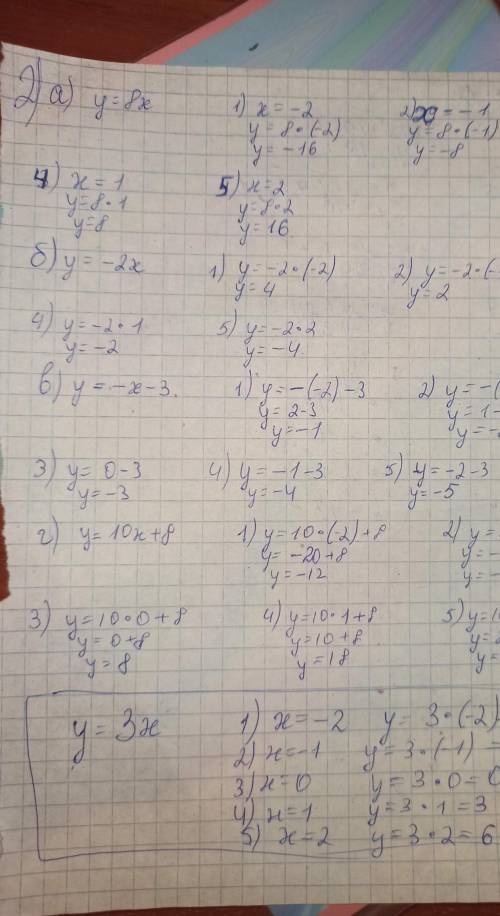 2) а) y=8x   1) x=-2   2) x=-1
y=8·(-2)   y=8·(-1)
y=-16   y=-8
4) x=1   5) x=2
y=8·1   y=8·2
y=8   y=16
б) y=-2x   1) y=-2·(-2)   2) y=-2·(-
y=4   y=2
4) y=-2·1   5) y=-2·2
y=-2   y=-4
в) y=-x-3.   1) y=-(-2)-3   2) y=-(
y=2-3   y=1-
y=-1   y=-
3) y=0-3   4) y=-1-3   5) y=-2-3
y=-3   y=-4   y=-5
г) y=10x+8   1) y=10·(-2)+8   2) y=
y=-20+8   y=-
y=-12   y=-
3) y=10·0+8   4) y=10·1+8   5) y=1
y=0+8   y=10+8   y=
y=8   y=18   y=
y=3x   1) x=-2   y=3·(-2)
2) x=-1   y=3·(-1)=
3) x=0   y=3·0=0
4) x=1   y=3·1=3
5) x=2   y=3·2=6